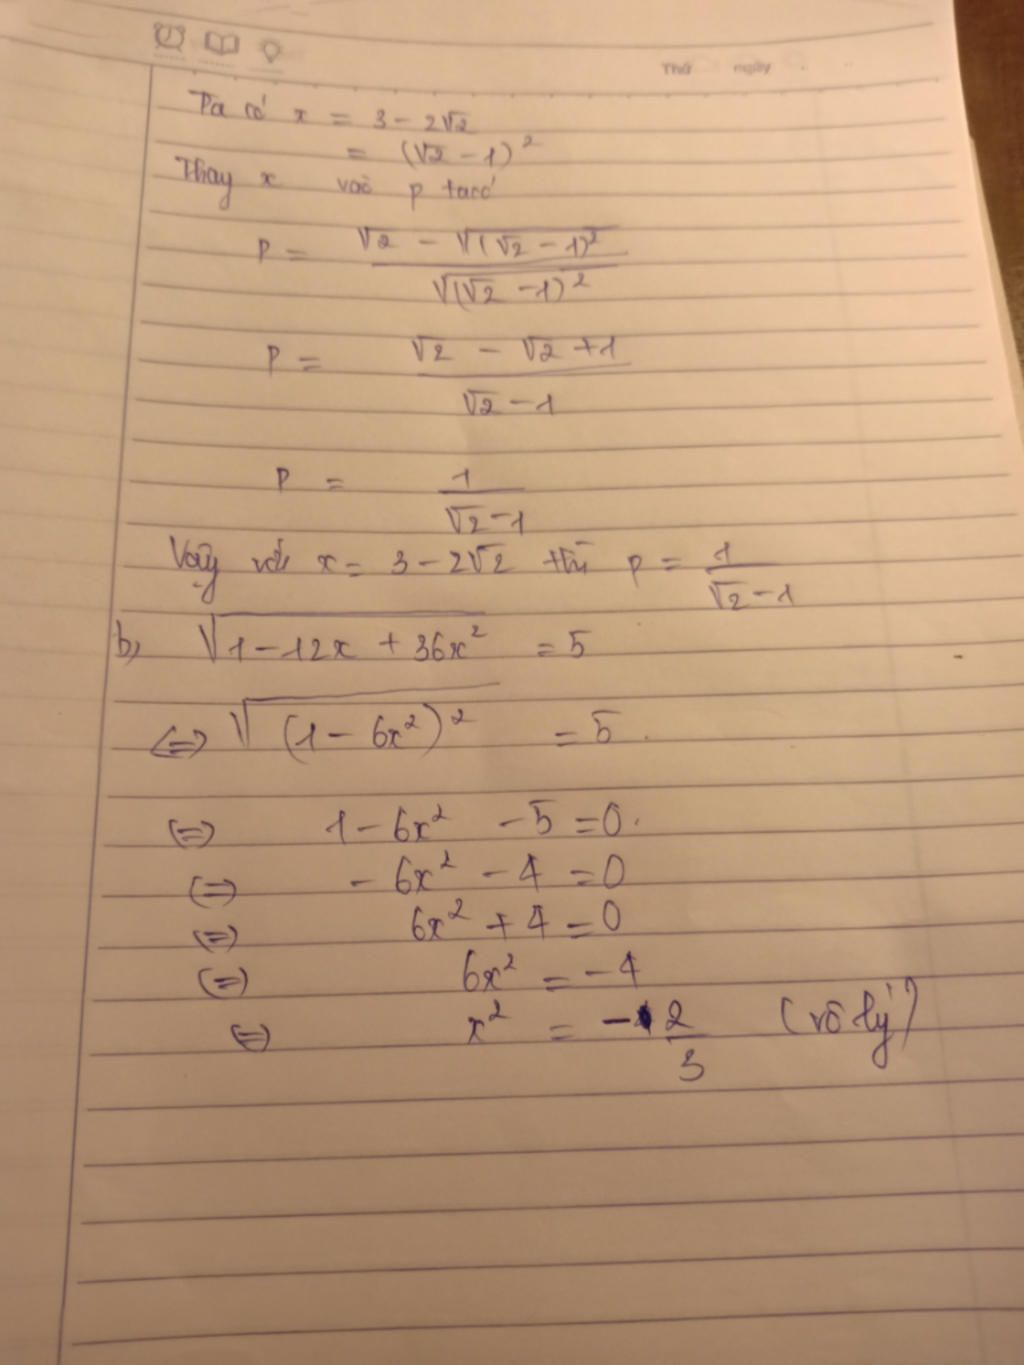 Thứ ngày
Ta có x = 3 - 2√2
= (√2 - 1)²
Thay x vào p ta có
P = (√2 - √(√2 - 1)²) / √(√2 - 1)²
P = (√2 - √2 + 1) / (√2 - 1)
P = 1 / (√2 - 1)
Vậy với x = 3 - 2√2 thì p = 1 / (√2 - 1)
b, √(1 - 12x + 36x²) = 5
<=> √((1 - 6x²)²) = 5.
(=) 1 - 6x² - 5 = 0.
(=) - 6x² - 4 = 0
(=) 6x² + 4 = 0
(=) 6x² = -4
(=) x² = -2/3 (vô lý)